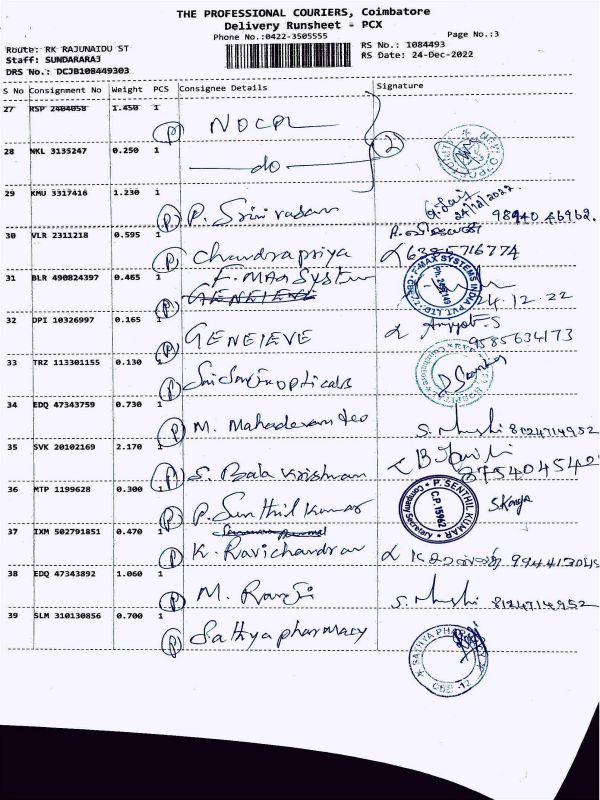 THE PROFESSIONAL COURIERS, Coimbatore
Delivery Runsheet - PCX
Phone No.:0422-3505555
Page No.:3
Route: RK RAJUNAIDU ST
RS No.: 1084493
Staff: SUNDARARAJ
RS Date: 24-Dec-2022
DRS No.: DCJB108449303
S No Consignment No Weight PCS Consignee Details Signature
27 RSP 2404058 1.450 1 (P) NDCPL (2)
28 NKL 3135247 0.250 1 do
29 KMU 3317416 1.230 1 (P) P. Srinivasan 24/12/2022 98940 46962.
30 VLR 2311218 0.595 1 (P) Chandrapriya
31 BLR 490824397 0.465 1 (P) F. MAX System F-MAX SYSTEMS INDIA PVT. LTD. 24.12.22
GENEIEVE
32 DPI 10326997 0.165 1 (P) GENEIEVE 9585634173
33 TRZ 113301155 0.130 1 (P) opticals
34 EDQ 47343759 0.730 1 (P) M. Mahadevan 8124714952
35 SVK 20102169 2.170 1 (P) S. Bala Krishnan 8754045402
36 MTP 1199628 0.300 1 (P) P. Senthil Kumar P. SENTHIL KUMAR C.P. 15962 Company Secretary
37 IXM 502791851 0.470 1 (P) K. Ravichandran
38 EDQ 47343892 1.060 1 (P) M. Ramji 8124714952
39 SLM 310130856 0.700 1 (P) Sathya pharmacy SATHYA PHARMACY CBE-12